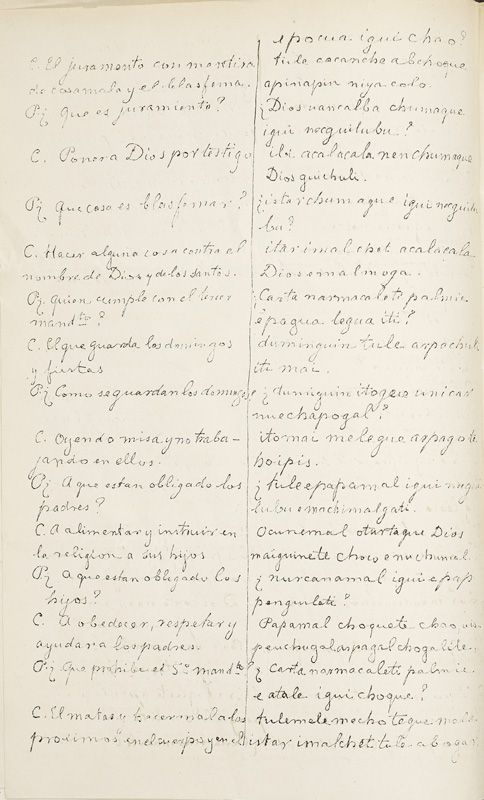 epocua igui chao?
C. El juramento con mentira
de cosa mala y el blasfema.
P¿ Que es juramento?
C. Poner a Dios por testigo
P¿ Que cosa es blasfemar?
C. Hacer alguna cosa contra el
nombre de Dios y de los santos.
P¿ Quien cumple con el tercer
mandto?
C. El que guarda los domingos
y fiestas
P¿ Como se guardan los domingos
C. Oyendo misa y no traba-
jando en ellos.
P¿ A que estan obligado los
padres?
C. A alimentar y instruir en
la religion a sus hijos
P¿ A que estan obligado los
hijos?
C. A obedecer, respetar y
ayudar a los padres.
P¿ Que prohibe el 5º mandto?
C. El matar y hacer mal a los
proximos en el cuerpo y en el
tule cacancheabchoque
apinapin niya colo.
¿Dios uancalba chumaque
igui necguilubu?
ibi acalacala nenchumaque
Dios guichuli.
¿istar chumaque igui necguilu
bu?
itar imalchet acalacala
Dios emalmoga.
¿Carta narmacaleti palmie
epagua legua iti?
duminguin tule arpachuli
iti mai.
¿duminguin itogeo unicar
nuechapogal?
itomai melegue arpagote
hoipis.
¿tule epapamal igui necgui
lubu emachimalgati.
Ocunemal oturtaque Dios
maiguinete choco enuchumal.
¿nurcanamal igui epap
penguileti?
Papamal choquete chao, uis
penchugal arpagal chogalite.
¿Carta narmacaleti palmie
eatale igui choque?
tulemele mechoteque mala
istar imalchet tule abogan